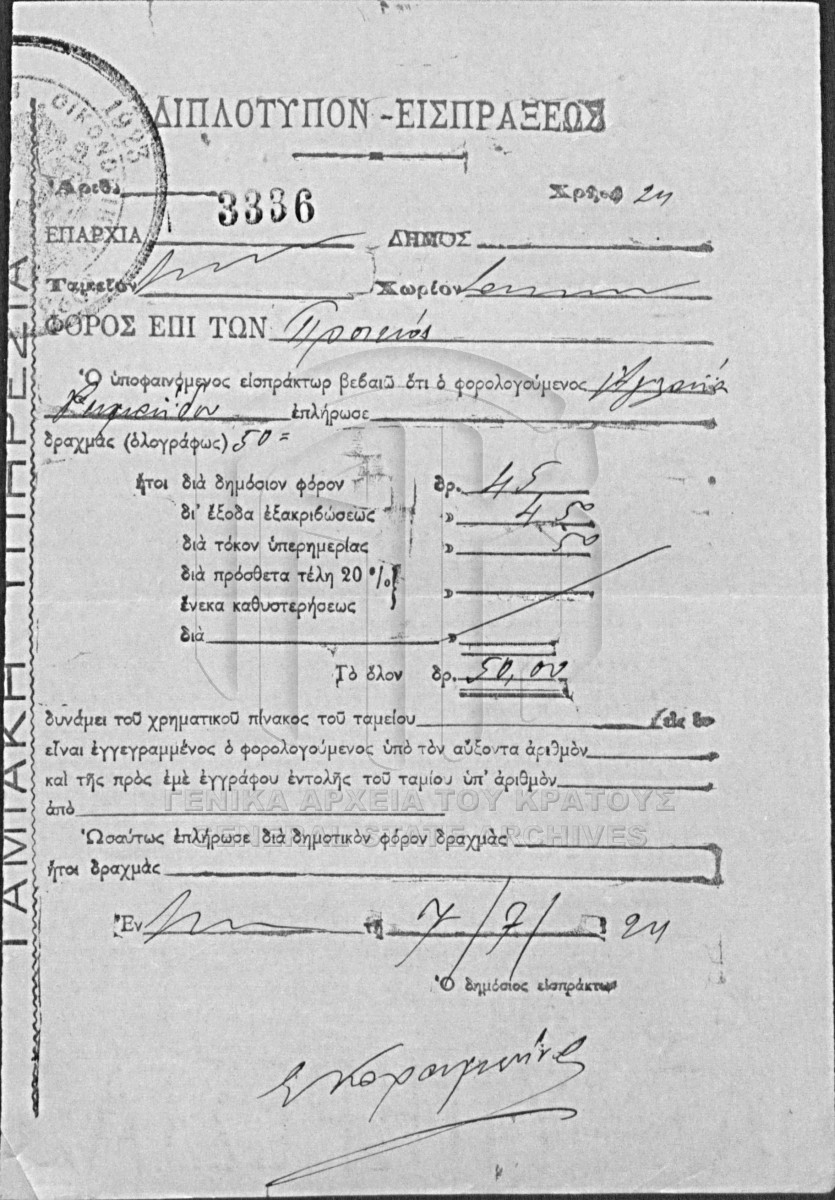 ΟΙΚΟΝΟ
1923
ΔΙΠΛΟΤΥΠΟΝ - ΕΙΣΠΡΑΞΕΩΣ
Ἀριθ. 3336 Χρῆσις 24
ΕΠΑΡΧΙΑ ΔΗΜΟΣ
Ταμεῖον Χωρίον
ΦΟΡΟΣ ΕΠΙ ΤΩΝ
Ὁ ὑποφαινόμενος εἰσπράκτωρ βεβαιῶ ὅτι ὁ φορολογούμενος
ἐπλήρωσε
δραχμὰς (ὁλογράφως) 50 =
ἤτοι διὰ δημόσιον φόρον δρ. 45
δι' ἔξοδα ἐξακριβώσεως » 4 50
διὰ τόκον ὑπερημερίας » 50
διὰ πρόσθετα τέλη 20 % »
ἕνεκα καθυστερήσεως
διὰ »
Τὸ ὅλον δρ. 50,00
δυνάμει τοῦ χρηματικοῦ πίνακος τοῦ ταμείου
εἶναι ἐγγεγραμμένος ὁ φορολογούμενος ὑπὸ τὸν αὔξοντα ἀριθμὸν
καὶ τῆς πρὸς ἐμὲ ἐγγράφου ἐντολῆς τοῦ ταμίου ὑπ' ἀριθμὸν
ΓΕΝΙΚΑ ΑΡΧΕΙΑ ΤΟΥ ΚΡΑΤΟΥΣ
ἀπὸ
Ὡσαύτως ἐπλήρωσε διὰ δημοτικὸν φόρον δραχμὰς
GENERAL STATE ARCHIVES
ἤτοι δραχμὰς
Ἐν τῇ 7/7/ 24
Ὁ δημόσιος εἰσπράκτωρ
ΤΑΜΙΑΚΗ ΥΠΗΡΕΣΙΑ